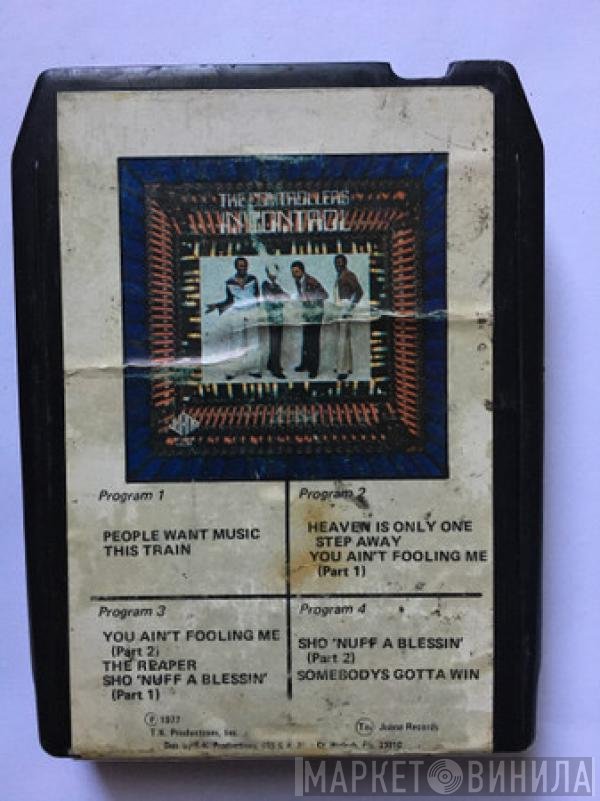 THE CONTROLLERS
IN CONTROL
Program 1
PEOPLE WANT MUSIC
THIS TRAIN
Program 2
HEAVEN IS ONLY ONE
STEP AWAY
YOU AIN'T FOOLING ME
(Part 1)
Program 3
YOU AIN'T FOOLING ME
(Part 2)
THE REAPER
SHO 'NUFF A BLESSIN'
(Part 1)
Program 4
SHO 'NUFF A BLESSIN'
(Part 2)
SOMEBODYS GOTTA WIN
Ⓟ 1977
T.K. Productions, Inc.
Juana Records
Dist. by T.K. Productions
МАРКЕТ ВИНИЛА